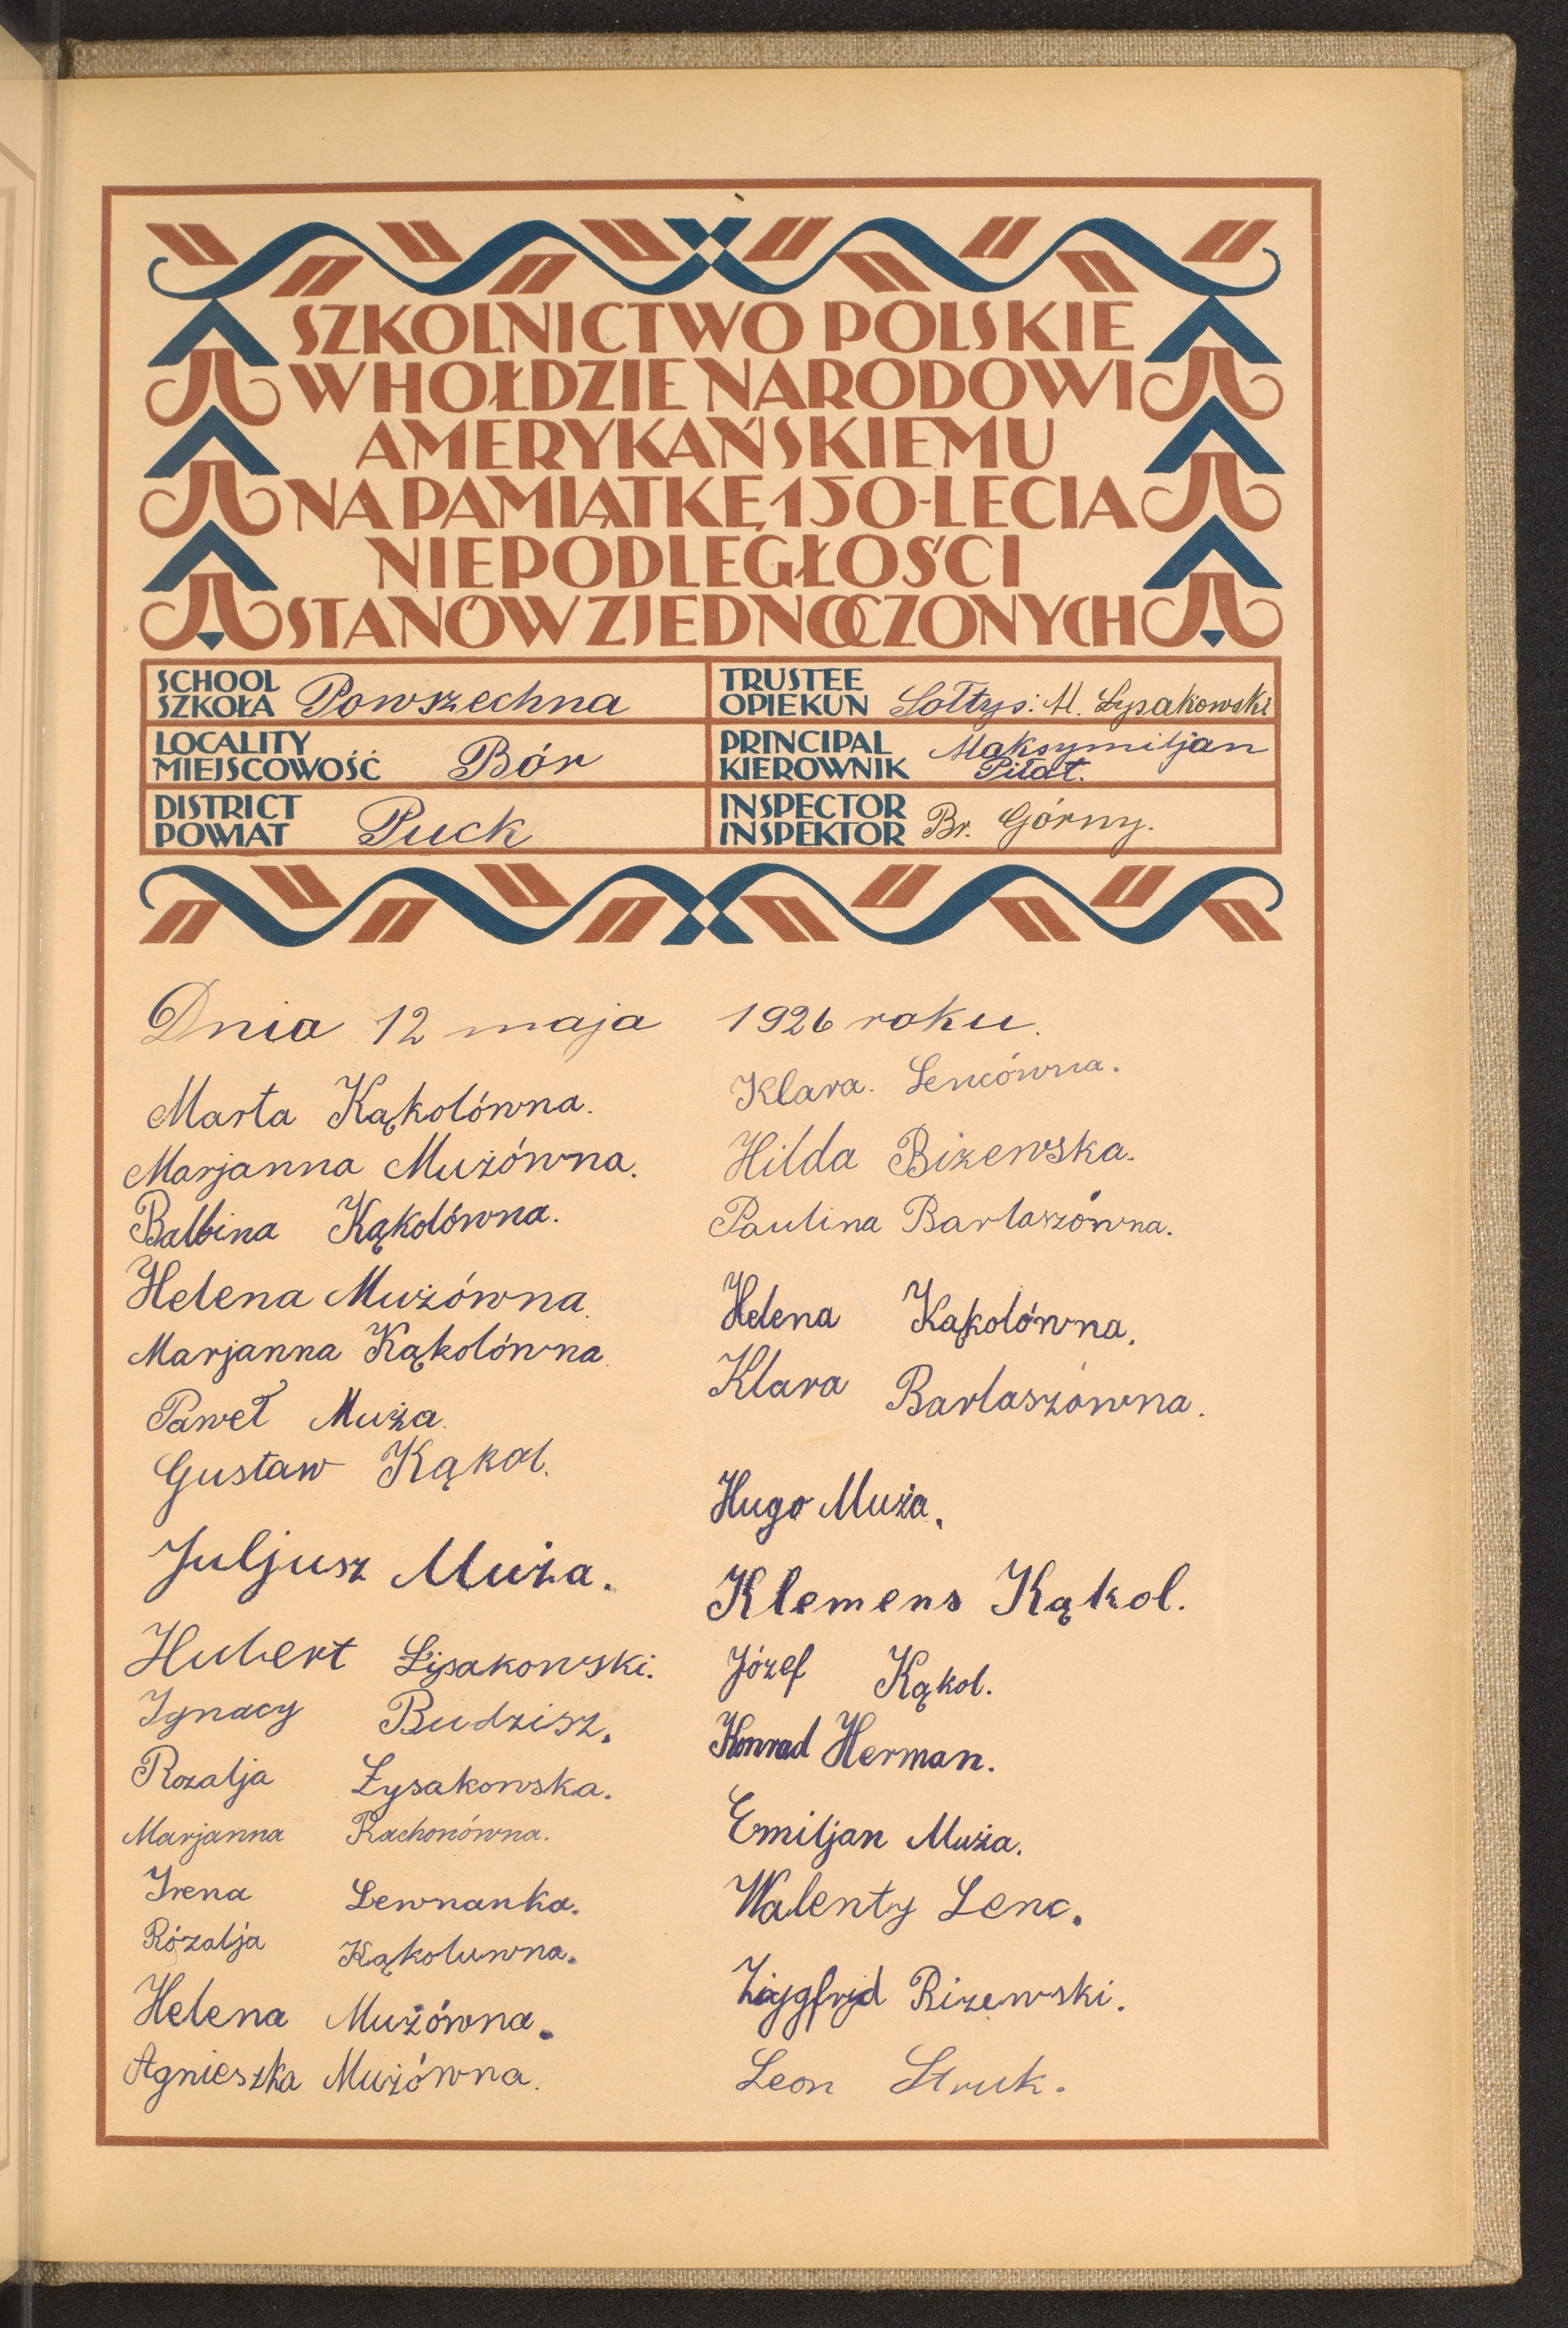 SZKOLNICTWO POLSKIE
W HOŁDZIE NARODOWI
AMERYKAŃSKIEMU
NA PAMIĄTKĘ 150-LECIA
NIEPODLEGŁOŚCI
STANÓW ZJEDNOCZONYCH
SCHOOL
SZKOŁA Powszechna
TRUSTEE
OPIEKUN Sołtys: M. Łysakowski
LOCALITY
MIEJSCOWOŚĆ Bór
PRINCIPAL
KIEROWNIK Maksymiljan
Piłat.
DISTRICT
POWIAT Puck
INSPECTOR
INSPEKTOR Br. Górny.
Dnia 12 maja 1926 roku.
Marta Kąkolówna.
Marjanna Mużówna.
Balbina Kąkolówna.
Helena Mużówna.
Marjanna Kąkolówna.
Paweł Muża.
Gustaw Kąkol.
Juljusz Muża.
Hubert Łysakowski.
Ignacy Budzisz.
Rozalja Łysakowska.
Marjanna Rachonówna.
Irena Lewnanka.
Rózalja Kąkoluwna.
Helena Mużówna.
Agnieszka Mużówna.
Klara. Lencówna.
Hilda Bizewska.
Paulina Barlaszówna.
Helena Kąkolówna.
Klara Barlaszówna.
Hugo Muża.
Klemens Kąkol.
Józef Kąkol.
Konrad Herman.
Emiljan Muża.
Walenty Lenc.
Bizewski.
Leon Struk.